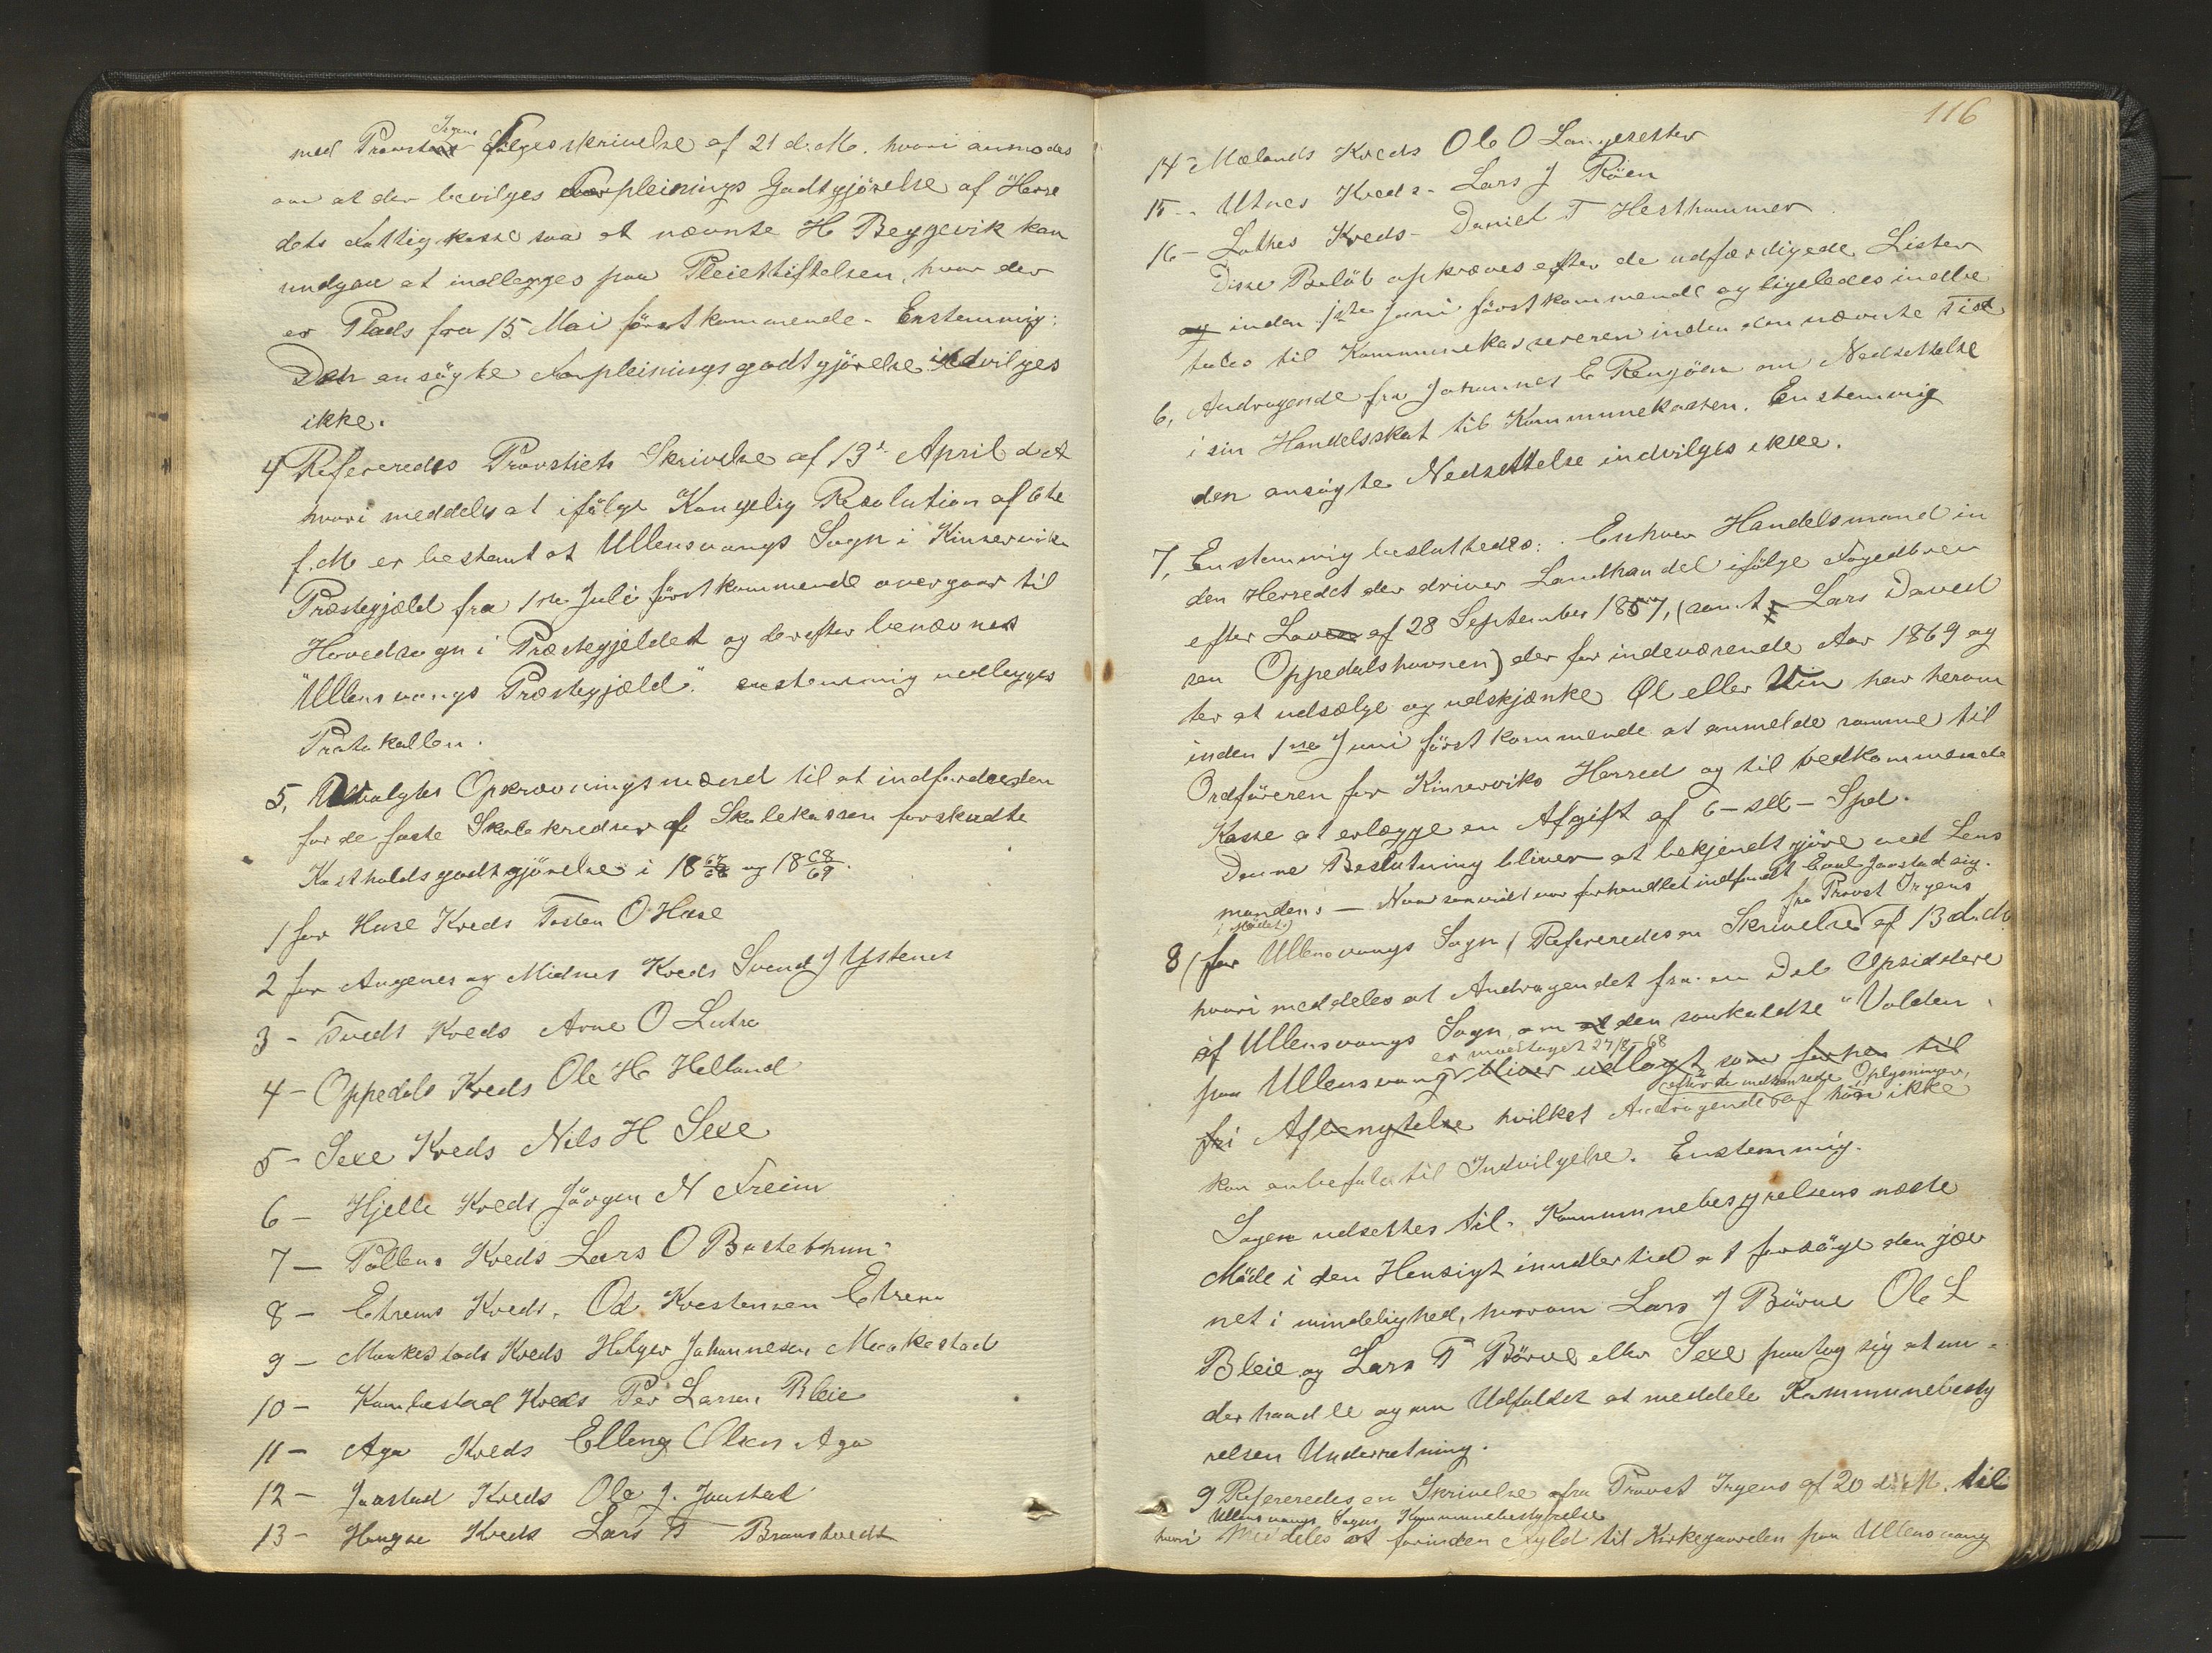 med Provst Irgens Følgeskrivelse af 21 d. M. hvori anmodes
om at der bevilges Forpleinings Godtgjörelse af Herre
dets Fattigkasse saa at nævnte H Beggevik kan
undgaa at indlægges paa Pleiestiftelsen, hvor der
er Plads fra 15 Mai förstkommende. Enstemmig:
Den ansögte Forpleiningsgodtgjörelse indvilges
ikke.
4 Refereredes Provstiets Skrivelse af 13de April d. A
hvori meddeles at ifölge Kongelig Resolution af 6te
f. M. er bestemt at Ullensvangs Sogn i Kinserviks
Præstegjæld fra 1ste Juli förstkommende overgaar til
Hovedsogn i Præstegjeldet og derefter benævnes
"Ullensvangs Præstegjæld". enstemmig vedlegges
Protokollen.
5, Udvalgtes Opkrævningsmænd til at indfordre den
for de faste Skolekredser af Skolekassen forskudte
Kostholdsgodtgjörelse i 18 67/68 og 18 68/69.
1 for Huse Kreds Tosten O Huse
2 for Augenes og Midnes Kreds Svend J Ystenes
3 - Tvedt Kreds Arne O Lutro
4 - Oppedals Kreds Ole H Helland
5 - Sexe Kreds Nils H Sexe
6 - Hjelle Kreds Jörgen N Freim
7 - Tollens Kreds Lars O Bustethun
8 - Etrems Kreds. Od Krestensen Etrem
9 - Maakestads Kreds Holger Johannesen Maakestad
10 - Kambestad Kreds Per Larsen Bleie
11 - Aga Kreds Elling Olsen Aga
12 - Jaastad Kreds Ole J. Jaastad
13 - Haugse Kreds Lars T Bramtvedt
116
14 - Mælands Kreds Ole O Langesetter
15 - Utnes Kreds - Lars J Röen
16 - Lothes Kreds - Daniel T Hesthammer
Disse Belöb opkræves efter de udfærdigede Lister
og inden 1ste Juni förstkommende og ligeledes indbe
tales til Kommunekassereren inden den nævnte Tid
6, Andragende fra Johannes E Rengöen om Nedsettelse
i sin Handelsskat til Kommunekassen. Enstemmig
den ansögte Nedsettelse indvilges ikke.
7, Enstemmig besluttedes: Enhver Handelsmand in
den Herredet der driver Landhandel ifölge Fogedbrev
efter Loven af 28 September 1857, (samt Lars Daved
sen Oppedalshavnen) der for indeværende Aar 1869 ag
ter at udsælge og udskjænke Øl eller Vin har herom
inden 1ste Juni förstkommende at anmelde samme til
Ordföreren for Kinserviks Herred og til vedkommende
Kasse at erlægge en Afgift af 6 - sex - Spd.
Denne Beslutning bliver at bekjendtgjöre ved Lens
manden: - Naar saavidt var forhandlet indfandt Emil Jaastad sig
i Mödet.)
fra Provst Irgens
8 (for Ullensvangs Sogn) Refereredes en Skrivelse af 13 d. M.
hvori meddeles at Andragendet fra en Del Opsiddere
af Ullensvangs Sogn, om at den saakaldte "Volden"
er modtaget 27/8-68
paa Ullensvang bliver udlagt som forhen til
efter de indhentede Oplysninger,
fri Afbenyttelse hvilket Andragende af ham ikke
kan anbefales til Indvilgelse. Enstemmig.
Sagen udsettes til Kommunebestyrelsens næste
Möde i den Hensigt imidlertid at forsöge den jæv
net i mindelighed, hvorom Lars J Börve Ole L
Bleie og Lars T Börve eller Sexe paatog sig at un
derhandle og om Udfaldet at meddele Kommunebesty
relsen Underretning.
9 Refereredes en Skrivelse fra Provst Irgens af 20 d. M. til
Ullensvangs Sogns Kommunebestyrelse
hvori meddeles at forinden Fyld til Kirkegaarden paa Ullensvang